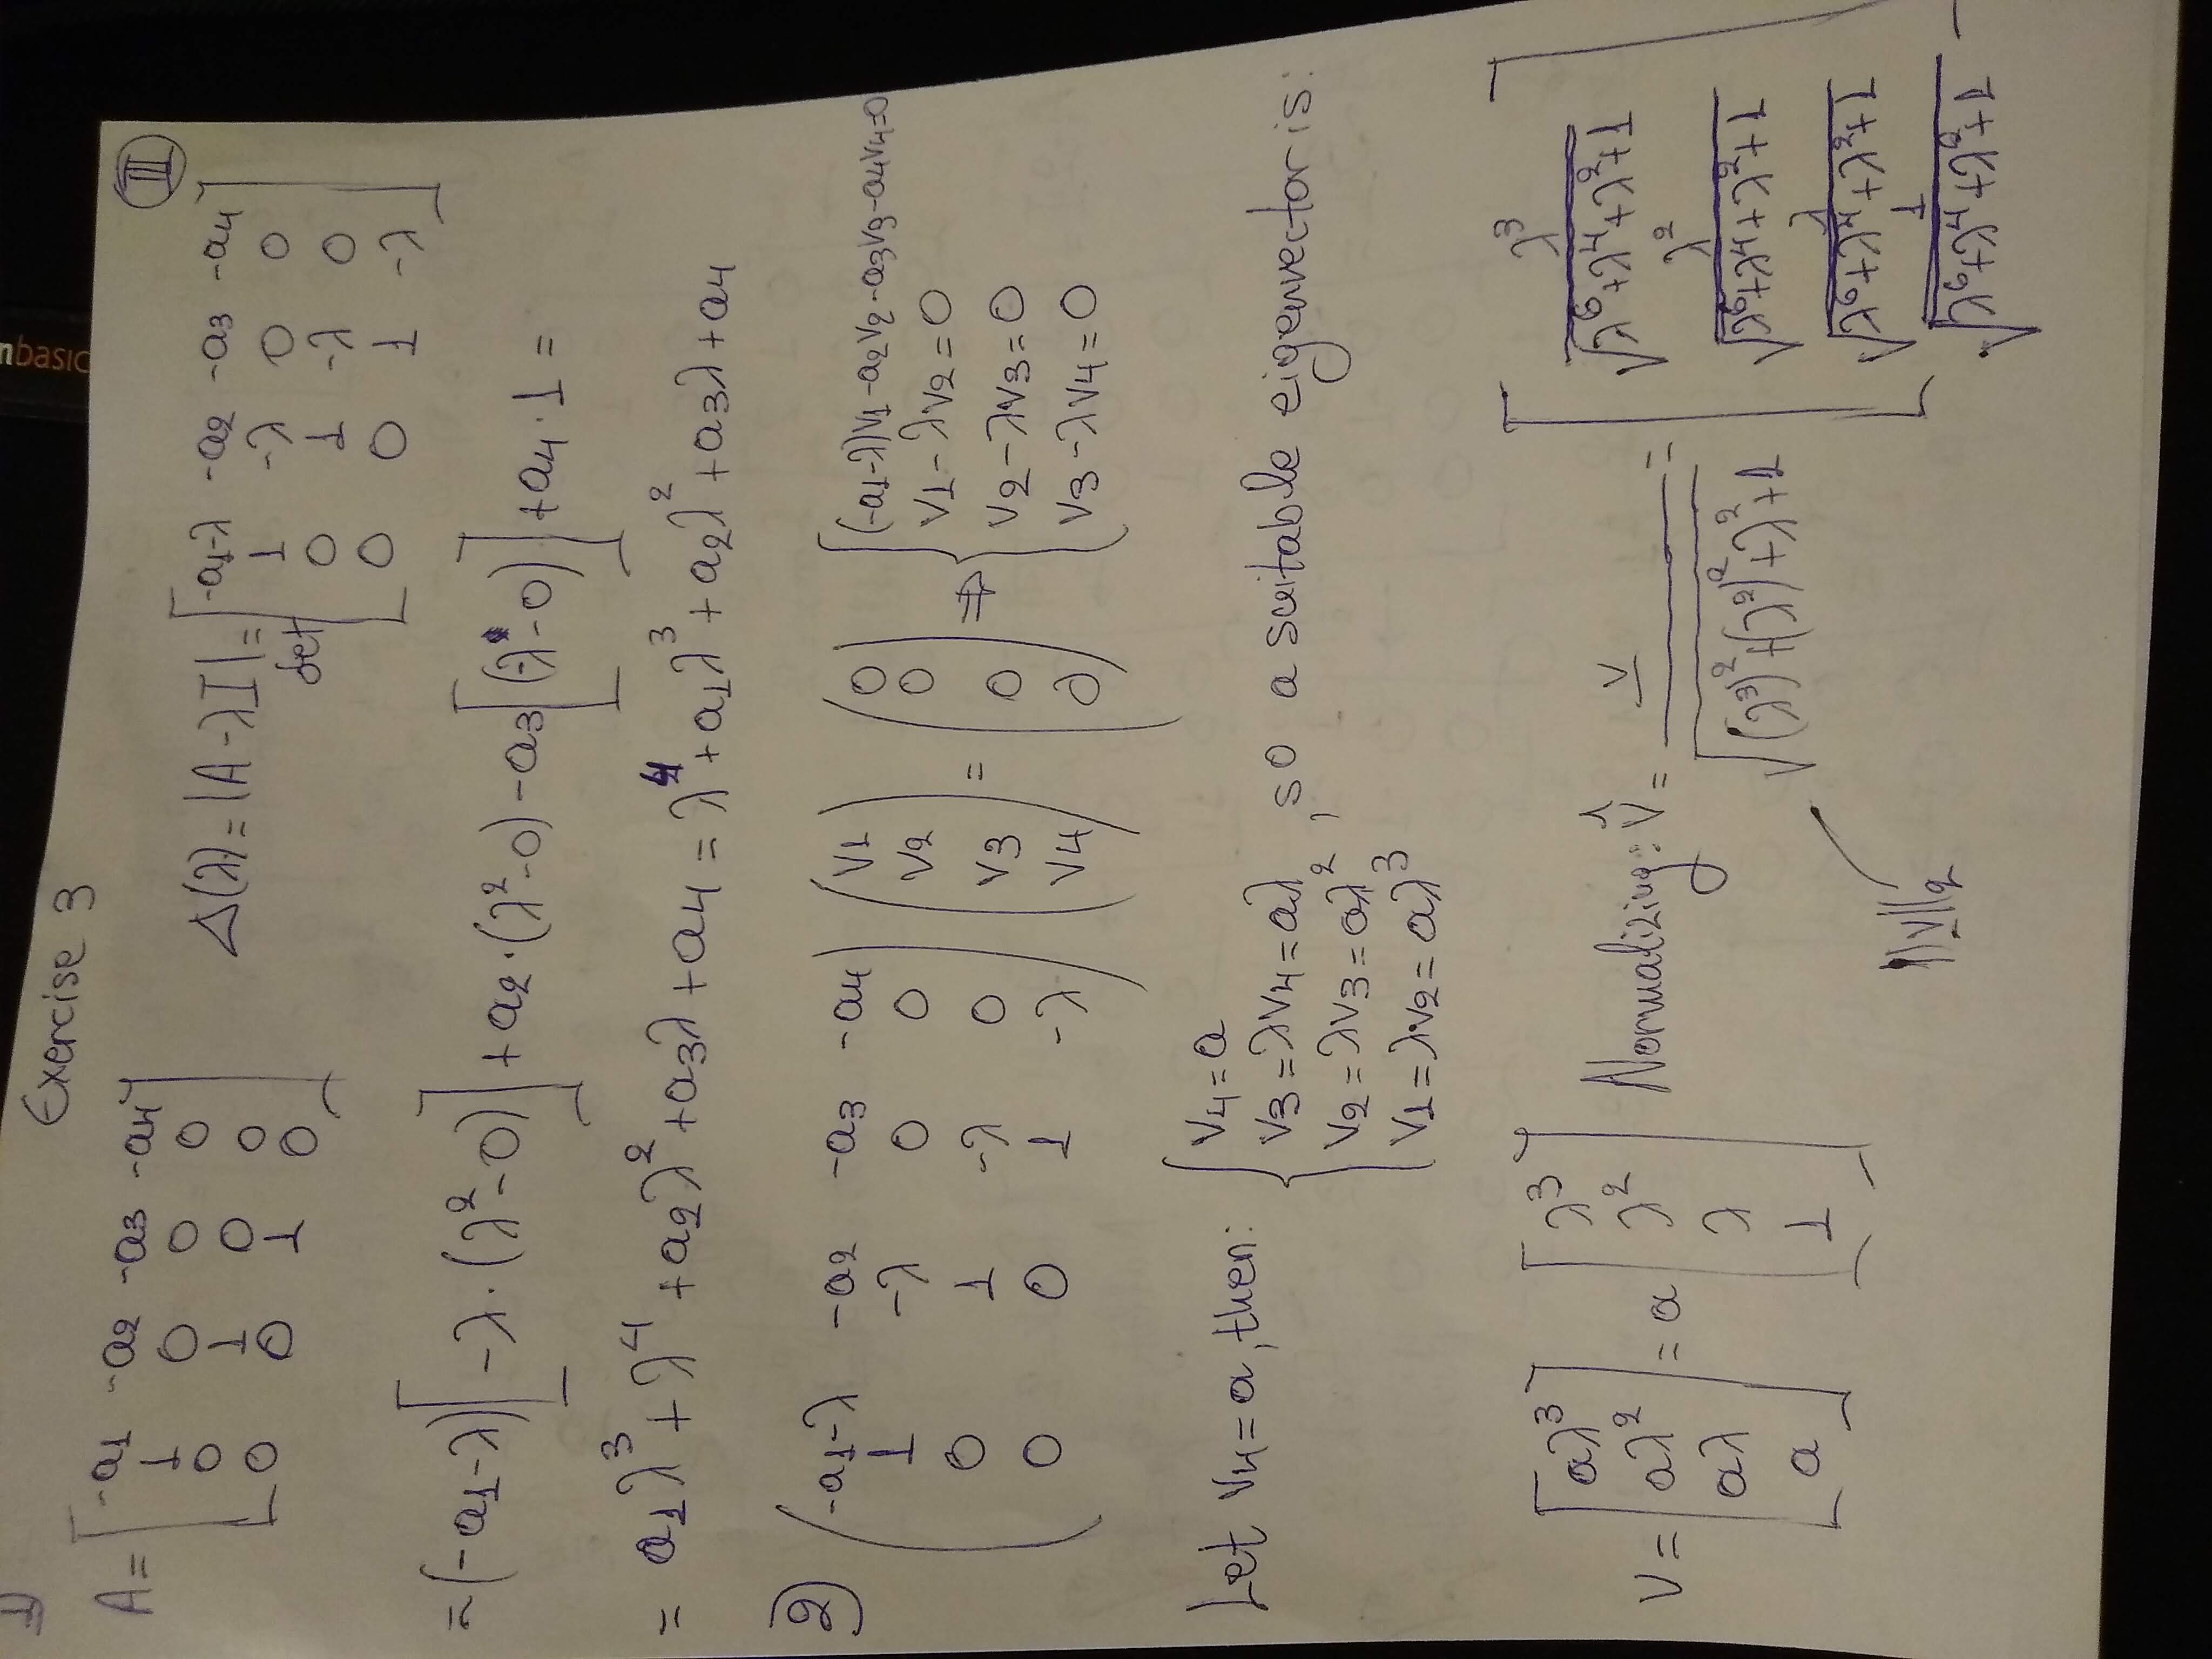 1)
Exercise 3
nbasic
III
A = [-a1 -a2 -a3 -a4
1 0 0 0
0 1 0 0
0 0 1 0]
Δ(λ) = |A - λI| = det [-a1-λ -a2 -a3 -a4
1 -λ 0 0
0 1 -λ 0
0 0 1 -λ]
= (-a1-λ)[-λ·(λ²-0)] + a2·(λ²-0) - a3[(-λ-0)] + a4·1 =
= a1λ³ + λ⁴ + a2λ² + a3λ + a4 = λ⁴ + a1λ³ + a2λ² + a3λ + a4
2) (-a1-λ -a2 -a3 -a4
1 -λ 0 0
0 1 -λ 0
0 0 1 -λ)
(V1
V2
V3
V4)
= (0
0
0
0)
⇒ {(-a1-λ)V1 - a2V2 - a3V3 - a4V4 = 0
V1 - λV2 = 0
V2 - λV3 = 0
V3 - λV4 = 0
Let V4 = a, then: {V4 = a
V3 = λV4 = aλ
V2 = λV3 = aλ²
V1 = λ·V2 = aλ³
, so a suitable eigenvector is:
V = [aλ³
aλ²
aλ
a]
= a [λ³
λ²
λ
1]
Normalizing: V̂ = V / √((λ³)² + (λ²)² + λ² + 1) =
[λ³ / √(λ⁶+λ⁴+λ²+1)
λ² / √(λ⁶+λ⁴+λ²+1)
λ / √(λ⁶+λ⁴+λ²+1)
1 / √(λ⁶+λ⁴+λ²+1)]
||V||2